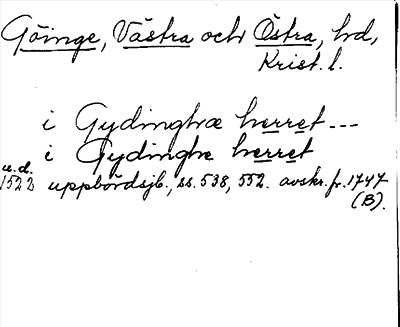 Göinge, Västra och Östra, hd,
Krist. l.
i Gydinghæ herret ---
i Gydinghe herret
u.d.
1522 uppbördsjb., ss. 538, 552. avskr. fr. 1747
(B).